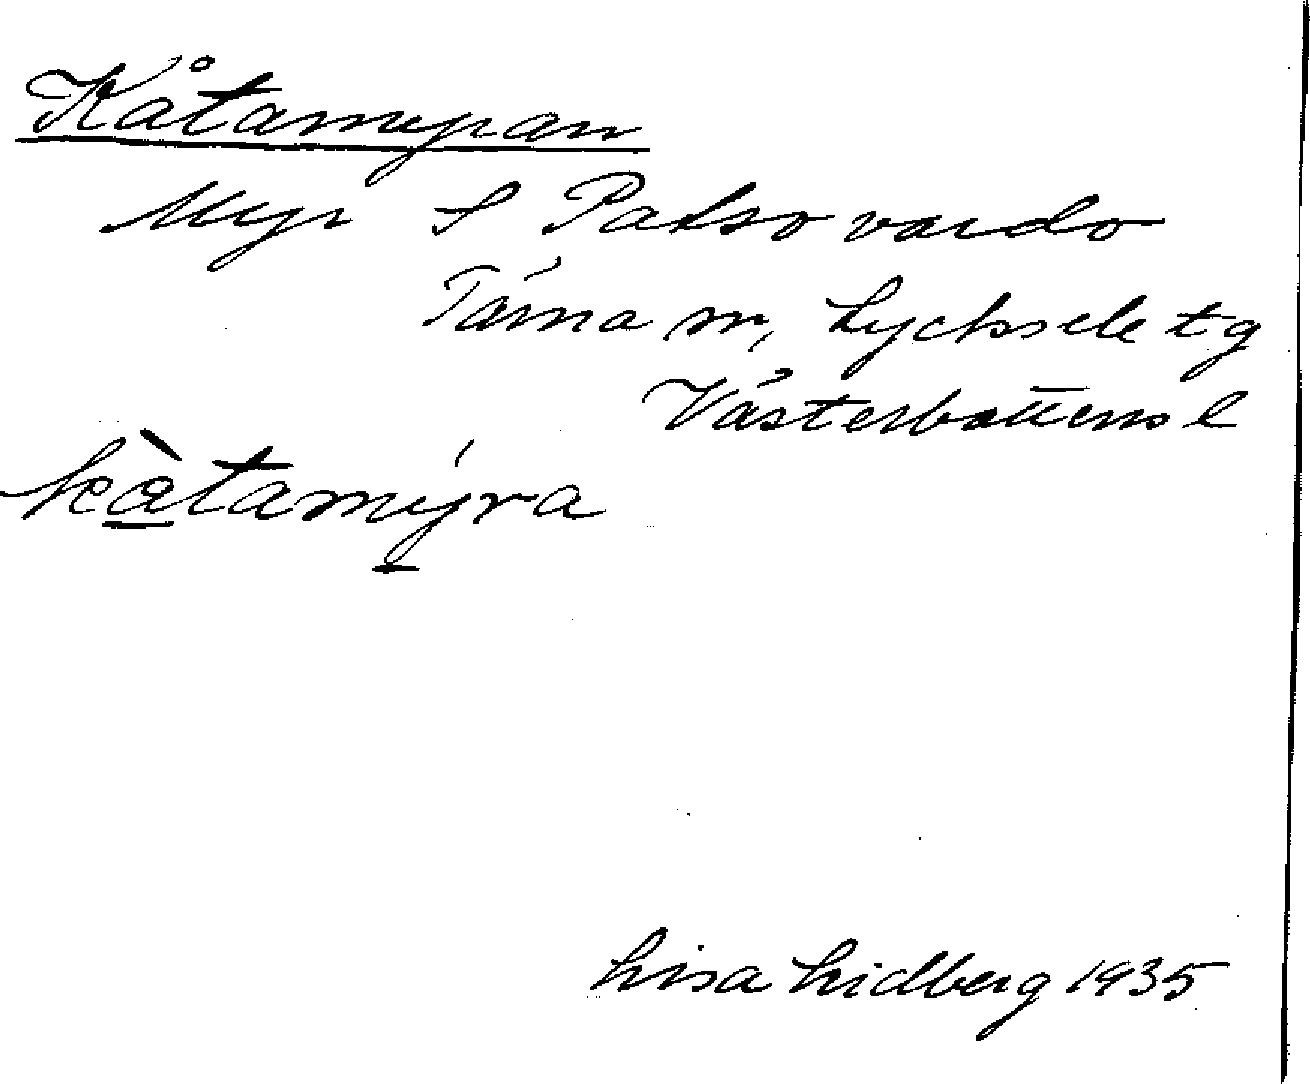 Kåtamyran
Myr S Patsovardo
Tärna sn, Lycksele tg
Västerbottens l
kàtamýra
Lisa Lidberg 1935